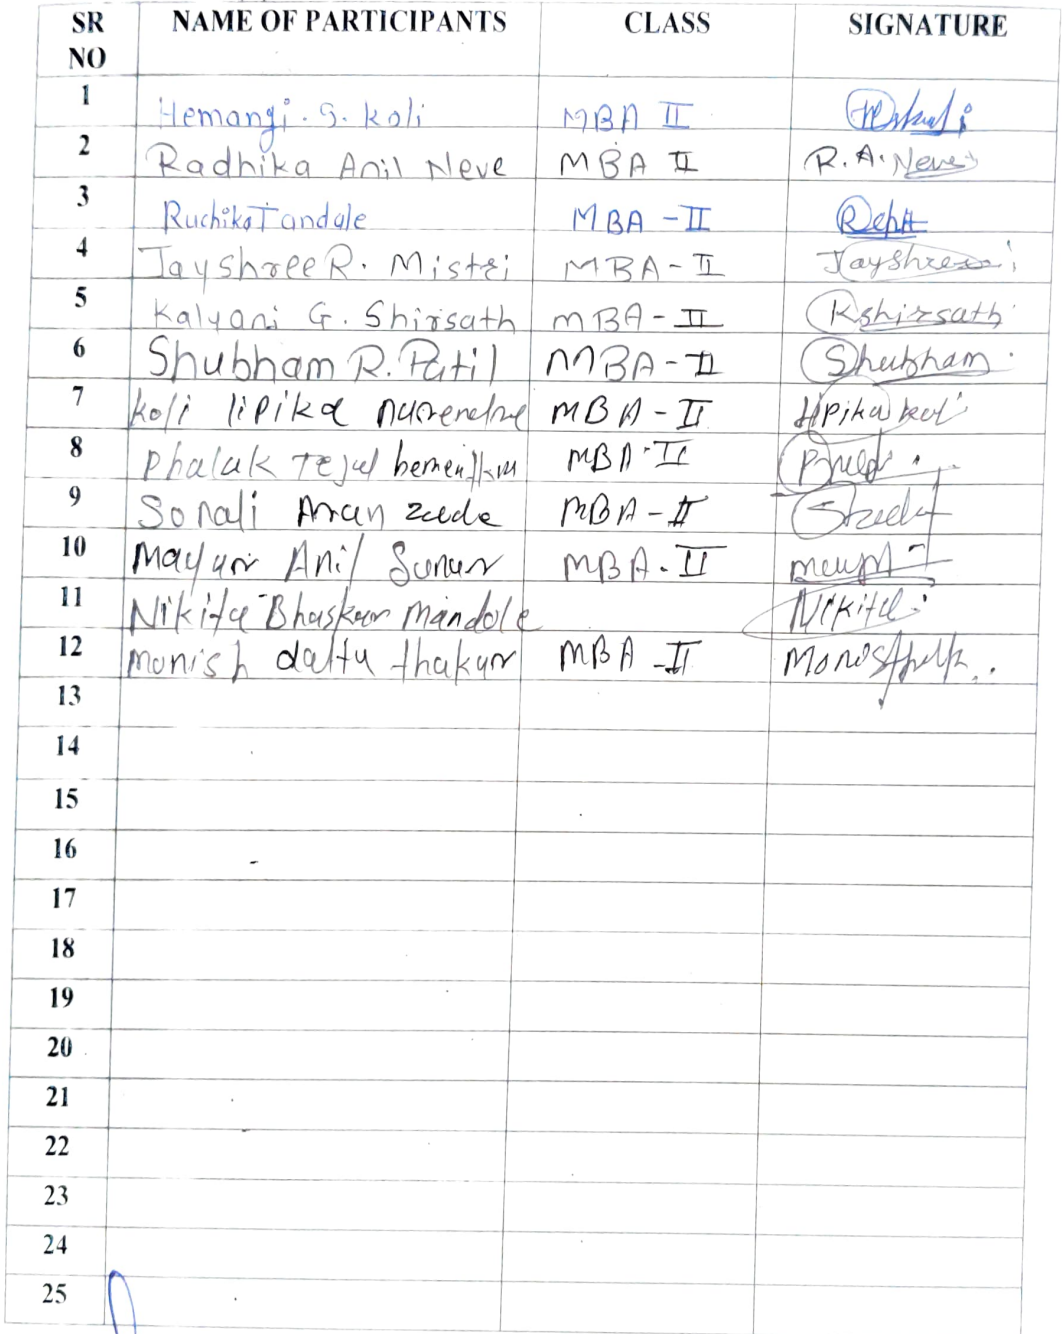 SR NO NAME OF PARTICIPANTS CLASS SIGNATURE
1 Hemangi. G. Koli MBA II
2 Radhika Anil Neve MBA II R. A. Neve
3 Ruchika Tandale MBA - II
4 Jayshree R. Mistri MBA - II Jayshree
5 Kalyani G. Shirsath MBA - II Kshirsath
6 Shubham R. Patil MBA - II Shubham
7 Koli lipika MBA - II lipika koli
8 Phalak Tejal MBA - II
9 Sonali MBA - II
10 Mayur Anil Sonar MBA - II
11 Nikita Bhaskar Mandole Nikita
12 monish dattu thakur MBA - II
13
14
15
16
17
18
19
20
21
22
23
24
25